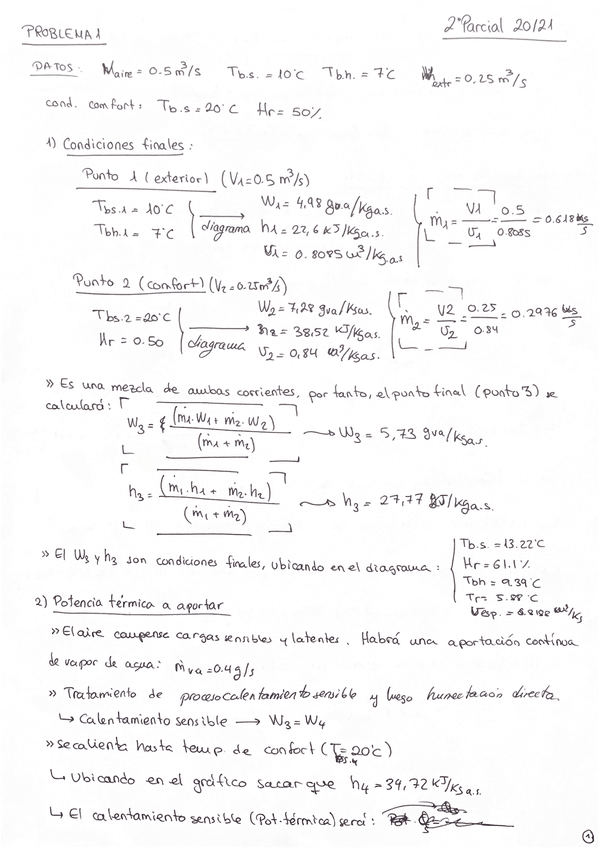 PROBLEMA 1
2º Parcial 20/21
DATOS: Maire = 0.5 m³/s Tb.s. = 10ºC Tb.h. = 7ºC ṁextr = 0,25 m³/s
cond. comfort: Tb.s = 20ºC Hr = 50%
1) Condiciones finales:
Punto 1 (exterior) (V1 = 0.5 m³/s)
Tbs.1 = 10ºC
Tbh.1 = 7ºC
diagrama
W1 = 4,98 gva/kga.s.
h1 = 22,6 kJ/kga.s.
υ1 = 0.8085 m³/kga.s
ṁ1 = V1/υ1 = 0.5/0.8085 = 0.618 kg/s
Punto 2 (comfort) (V2 = 0.25 m³/s)
Tbs.2 = 20ºC
Hr = 0.50
diagrama
W2 = 7,28 gva/kgas.
h2 = 38,52 kJ/kgas.
υ2 = 0,84 m³/kgas.
ṁ2 = V2/υ2 = 0.25/0.84 = 0.2976 kg/s
» Es una mezcla de ambas corrientes, por tanto, el punto final (punto 3) se
calculará:
W3 = (ṁ1·W1 + ṁ2·W2)/(ṁ1 + ṁ2) → W3 = 5,73 gva/kga.s.
h3 = (ṁ1·h1 + ṁ2·h2)/(ṁ1 + ṁ2) → h3 = 27,77 kJ/kga.s.
» El W3 y h3 son condiciones finales, ubicando en el diagrama:
Tb.s. = 13.22ºC
Hr = 61.1%
Tbh = 9.39ºC
Tr = 5.88ºC
υesp. = 0.8188 m³/kg
2) Potencia térmica a aportar
» El aire compense cargas sensibles y latentes. Habrá una aportación contínua
de vapor de agua: ṁva = 0.4 g/s
» Tratamiento de proceso calentamiento sensible y luego humectación directa.
↳ Calentamiento sensible → W3 = W4
» se calienta hasta temp. de confort (Tbs.4 = 20ºC)
↳ Ubicando en el gráfico sacar que h4 = 34,72 kJ/kga.s.
↳ El calentamiento sensible (Pot. térmica) será:
1